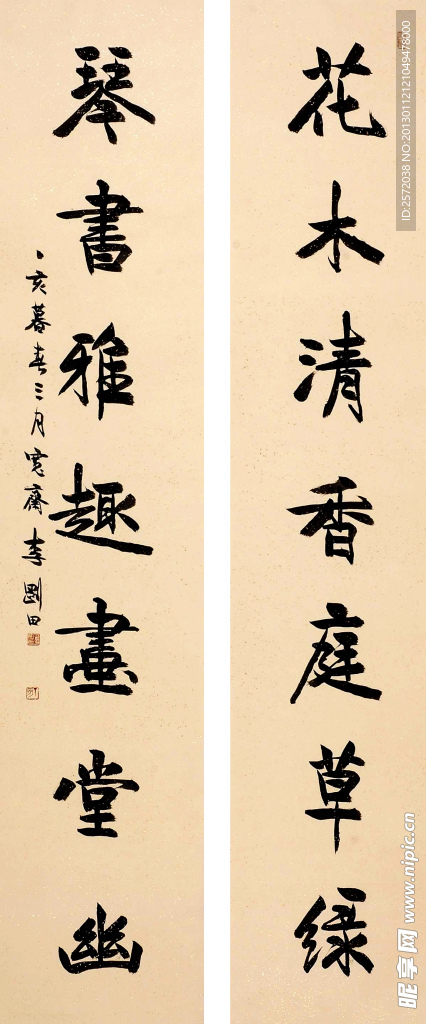 花木清香庭草緑
琴書雅趣畫堂幽
亥暮春三月寬齋李剛田
ID:2572038 NO:20130112121049478000
昵享网 www.nipic.cn